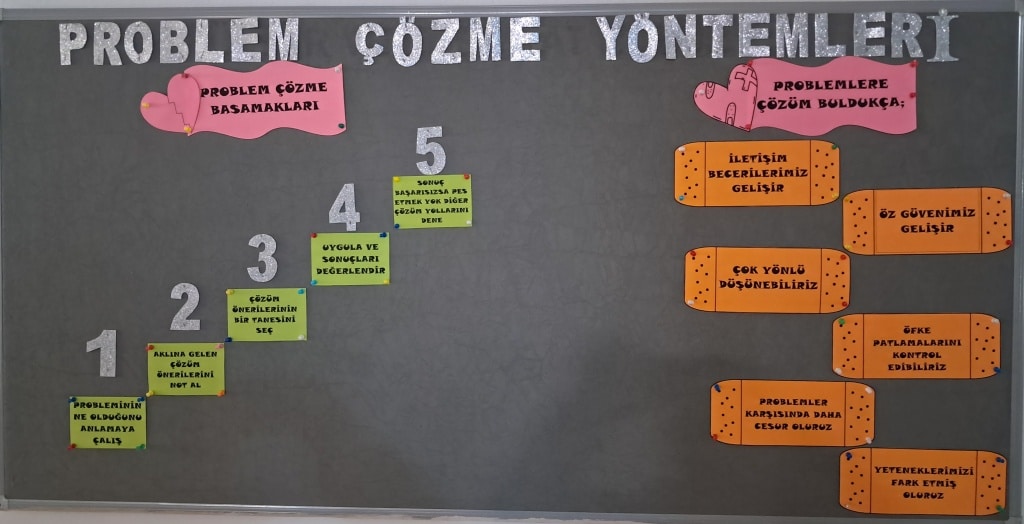 PROBLEM ÇÖZME YÖNTEMLERİ
PROBLEM ÇÖZME
BASAMAKLARI
5
SONUÇ
BAŞARISIZSA PES
ETMEK YOK DİĞER
ÇÖZÜM YOLLARINI
DENE
4
UYGULA VE
SONUÇLARI
DEĞERLENDİR
3
ÇÖZÜM
ÖNERİLERİNİN
BİR TANESİNİ
SEÇ
2
AKLINA GELEN
ÇÖZÜM
ÖNERİLERİNİ
NOT AL
1
PROBLEMİNİN
NE OLDUĞUNU
ANLAMAYA
ÇALIŞ
PROBLEMLERE
ÇÖZÜM BULDUKÇA;
İLETİŞİM
BECERİLERİMİZ
GELİŞİR
ÖZ GÜVENİMİZ
GELİŞİR
ÇOK YÖNLÜ
DÜŞÜNEBİLİRİZ
ÖFKE
PATLAMALARINI
KONTROL
EDİBİLİRİZ
PROBLEMLER
KARŞISINDA DAHA
CESUR OLURUZ
YETENEKLERİMİZİ
FARK ETMİŞ
OLURUZ